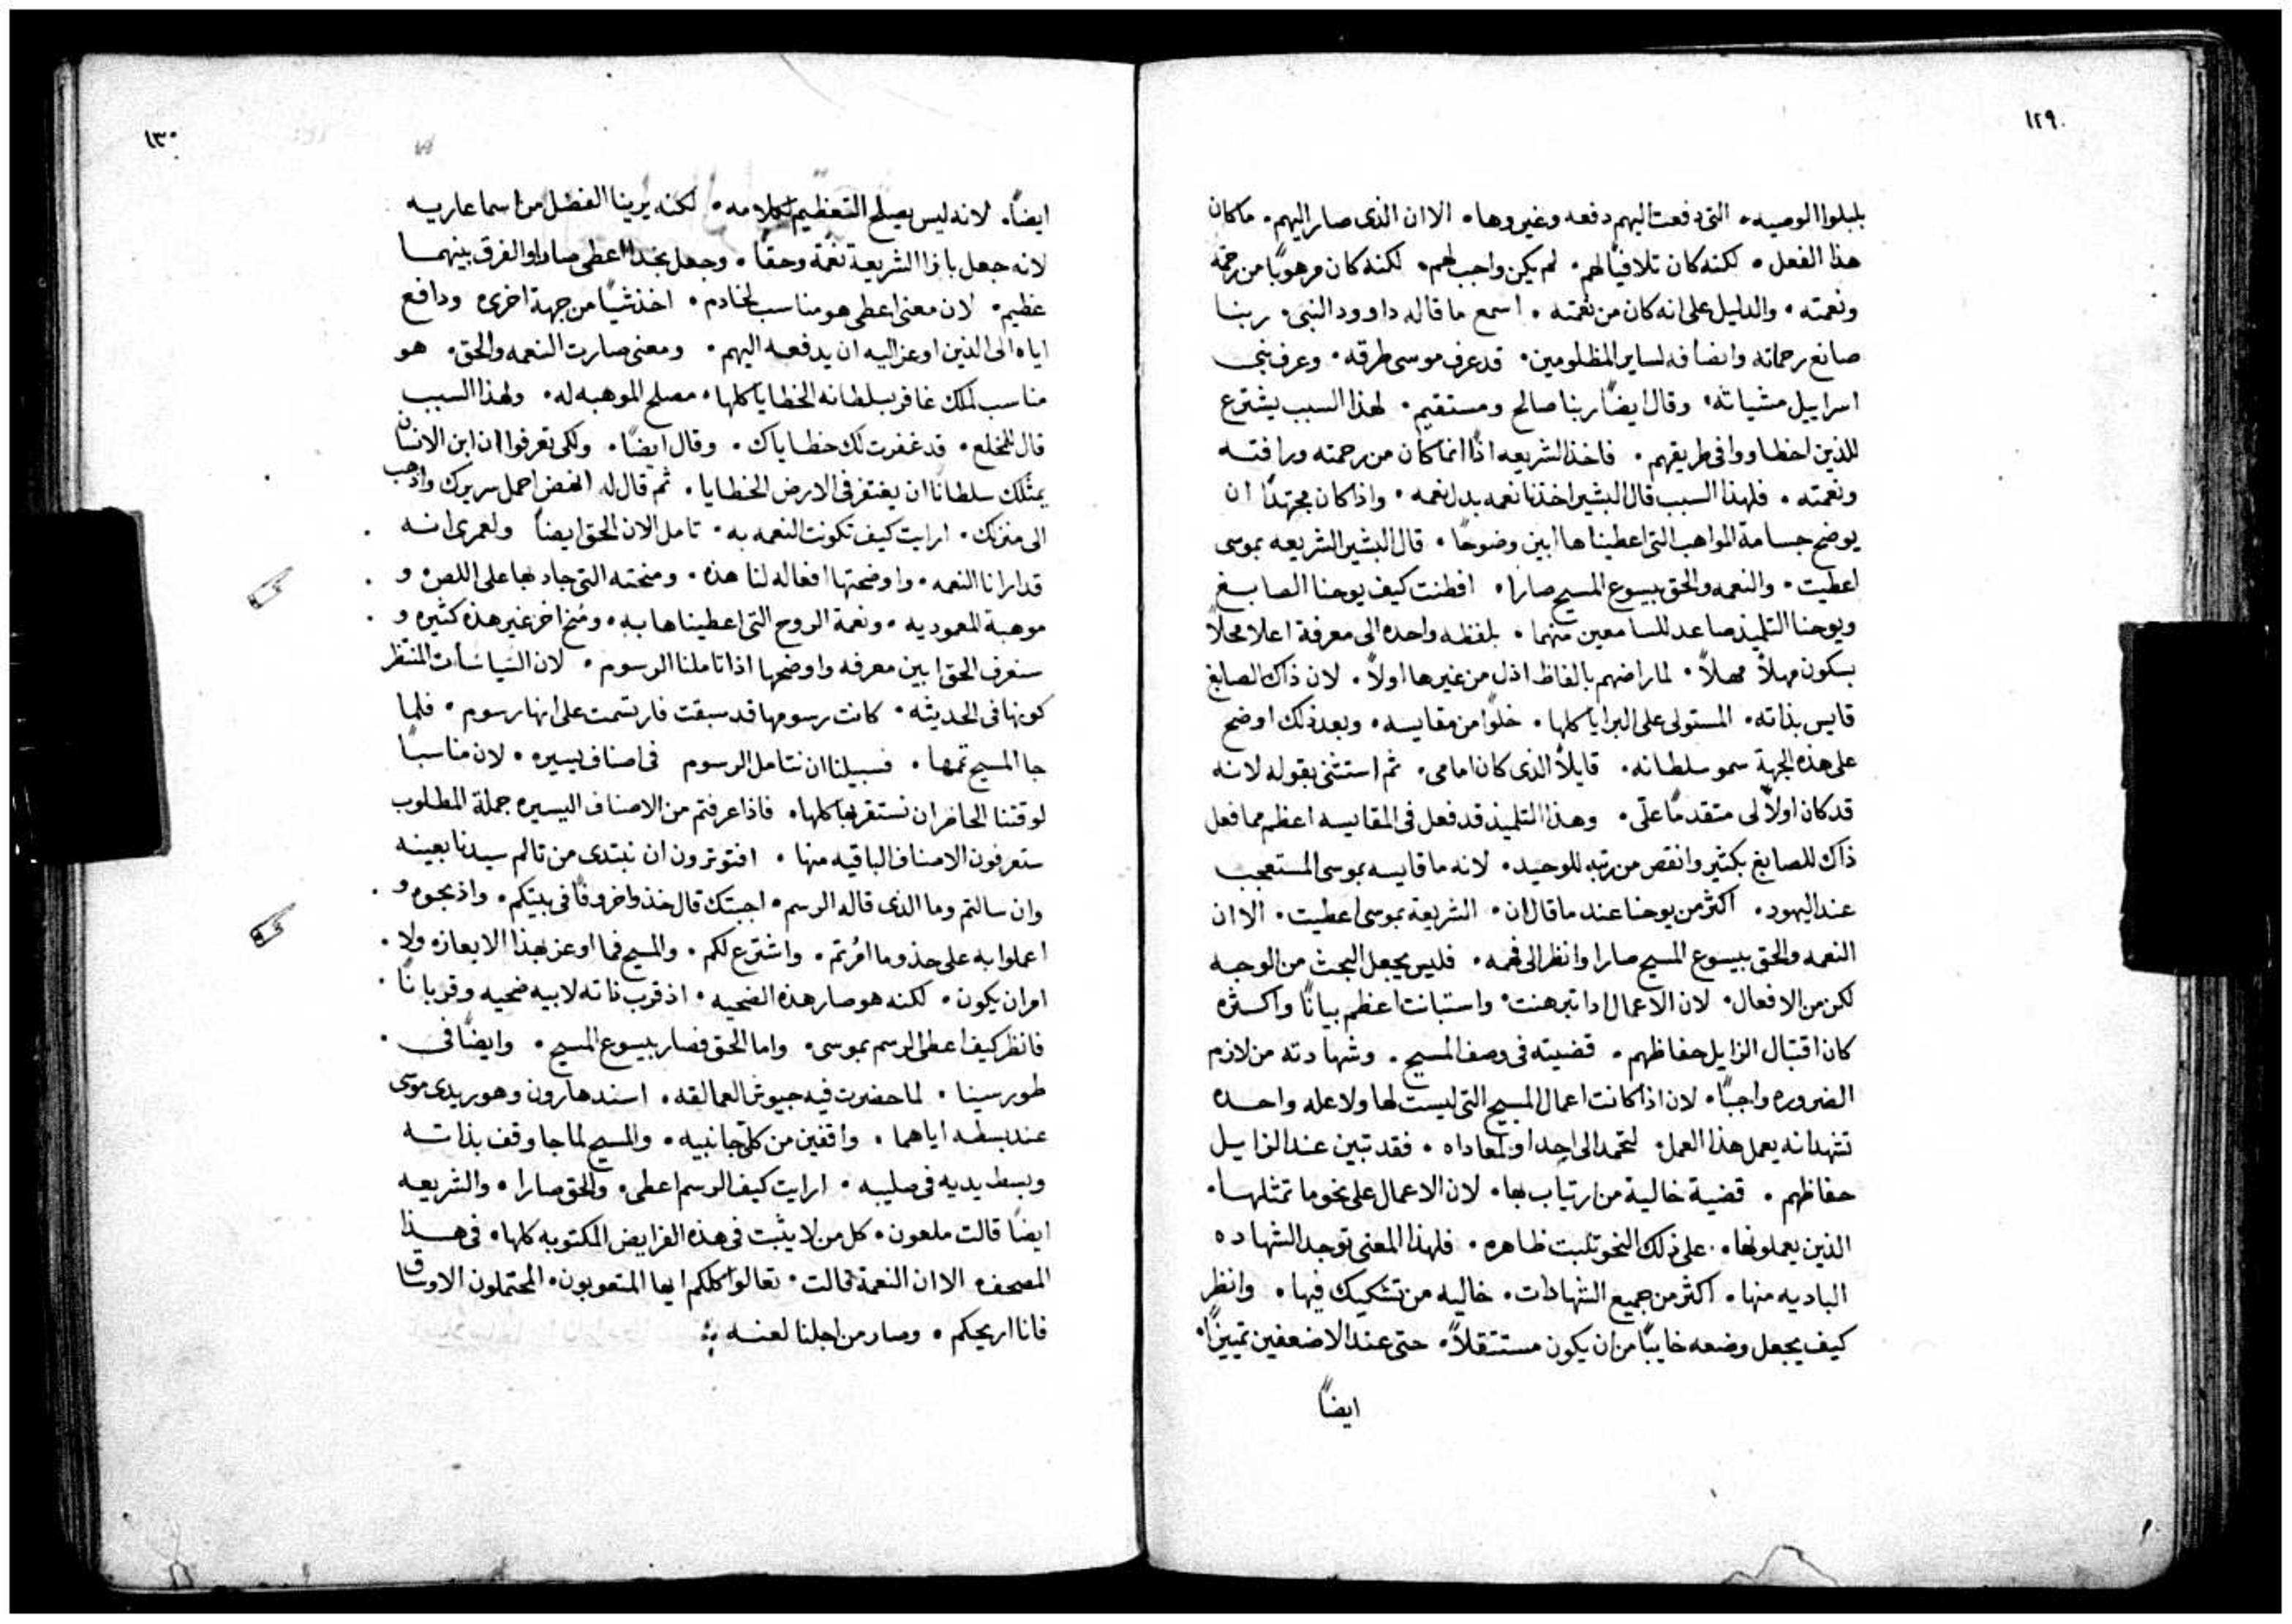 ١٢٩
بلبلوا الوصيه. التى دفعت اليهم دفعه وغيروها. الا ان الذى صار اليهم. ما كان
هذا الفعل. لكنه كان تلافيًا لهم. لم يكن واجب لهم. لكنه كان مرهوبًا من رحمة
ونعمته. والدليل على انه كان من نعمته. اسمع ما قاله داوود النبى. ربنا
صانع رحماته وانصافه لساير المظلومين. قد عرف موسى طرقه. وعرف بنى
اسراييل مشياته. وقال ايضًا ربنا صالح ومستقيم. لهذا السبب يشترع
للذين اخطاووا فى طريقهم. فاخذ الشريعه اذًا انما كان من رحمته ورافتـه
ونعمته. فلهذا السبب قال البشير اخذنا نعمه بدل نعمه. واذا كان مجتهدًا ان
يوضح جسامة المواهب التى اعطيناها ابين وضوحًا. قال البشير الشريعه بموسى
اعطيت. والنعمه والحق بيسوع المسيح صارا. افطنت كيف يوحنا الصابغ
ويوحنا التلميذ صاعد للسامعين منهما. بلفظه واحده الى معرفة اعلا محلاً
بسكون مهلاً مهلاً. لما راضهم بالفاظ اذل من غيرها اولاً. لان ذاك الصابغ
قايس بذاته. المستولى على البرايا كلها. خلوًا من مقايسه. وبعد ذلك اوضح
على هذه الجهة سمو سلطانه. قايلاً الذى كان امامى. ثم استثنى بقوله لانه
قد كان اولاً لى متقدمًا علّى. وهذا التلميذ قد فعل فى المقايسه اعظم مما فعل
ذاك للصابغ بكثير وانقص من رتبه للوحيد. لانه ما قايسه بموسى المستعجب
عند اليهود. اكثر من يوحنا عند ما قال ان. الشريعة بموسى اعطيت. الا ان
النعمه والحق بيسوع المسيح صارا وانظر الى فهمه. فليس يجعل البحث من الوجـه
لكن من الافعال. لان الاعمال اذا تبرهنت. واستبانت اعظم بيانًا واكـثره
كان اقتبال الزايل حفاظهم. قضيته فى وصف المسيح. وشهادته من لازم
الضروره واجبًا. لان اذا كانت اعمال المسيح التى ليست لها ولا عله واحـده
تشهد انه يعمل هذا العمل. لتحمد الى احد او لمعاداه. فقد تبين عند الزايـل
حفاظهم. قضية خالية من ارتياب بها. لان الاعمال على نحو ما تمثلهـا.
الذين يعملونها. على ذلك النحو تلبت ظاهره. فلهذا المعنى توجد الشهاده
الباديه منها. اكثر من جميع الشهادات. خاليه من تشكيك فيها. وانظر
كيف يجعل وضعه خايبًا من ان يكون مستثقلاً. حتى عند الاضعفين تمييزًا.
ايضًا
١٣٠
ايضًا. لانه ليس يصلح التعظيم لكلامه. لكنه يرينا الفضل من اسما عاريـه
لانه جعل بازا الشريعة نعمة وحقًا. وجعل بحذا اعطى صارا والفرق بينهمـا
عظيم. لان معنى اعطى هو مناسب لخادم. اخذ شيًا من جهة اخرى ودافع
اياه الى الذين اوعز اليه ان يدفعـه اليهم. ومعنى صارت النعمه والحق. هو
مناسب لملك غافر بسلطانه الخطايا كلها. مصلح الموهبه له. ولهذا السبب
قال للمخلع. قد غفرت لك خطاياك. وقال ايضًا. ولكى تعرفوا ان ابن الانسان
يمتلك سلطانًا ان يغتفر فى الارض الخطايا. ثم قال له انهض احمل سريرك واذهب
الى منزلك. ارايت كيف تكونت النعمه به. تامل الان الحق ايضًا ولعمرى انـه
قد ارانا النعمه. واوضحتها افعاله لنا هذه. ومنحته التى جاد بها على اللص. و
موهبة المعموديه. ونعمة الروح التى اعطيناها به. ومُنح اخر غير هذه كثيره و
سنعرف الحق ابين معرفه واوضحها اذا تاملنا الرسوم. لان السياسات المنتظر
كونها فى الحديثه. كانت رسومها قد سبقت فارتسمت على انها رسوم. فلما
جا المسيح تمها. فسبيلنا ان نتامل الرسوم فى اصناف يسيره. لان مناسبـًا
لوقتنا الحاضر ان نستقربها كلها. فاذا عرفتم من الاصناف اليسيره جملة المطلوب
ستعرفون الاصناف الباقيه منها. افتوثرون ان نبتدى من تالم سيدنا بعينـه
وان سالتم وما الذى قاله الرسم. اجبتك قال خذوا خروفًا فى بيتكم. واذبحوه و
اعملوا به على حذو ما امُرتم. واشترع لكم. والمسيح فما اوعز بهذا الايعازه ولا
امر ان يكون. لكنه هو صار هذه الضحيه. اذ قرب ذاته لابيه ضحيه وقربانًا
فانظر كيف اعطى الرسم بموسى. واما الحق فصار بيسوع المسيح. وايضًا فى
طور سينا. لما حضرت فيه جيوش العمالقه. اسند هارون وهور يدى موسى
عند بسطه اياهما. واقفين من كلَى جانبيه. والمسيح لما جا وقف بذاتـه
وبسط يديه فى صليبه. ارايت كيف الرسم اعطى. والحق صارا. والشريعه
ايضًا قالت ملعون. كل من لا يثبت فى هذه الفرايض المكتوبه كلها. فى هـذا
المصحف. الا ان النعمة قالت. تعالوا كلكم ايها المتعوبون. المحتملون الاوساق
فانا اريحكم. وصار من اجلنا لعنـه